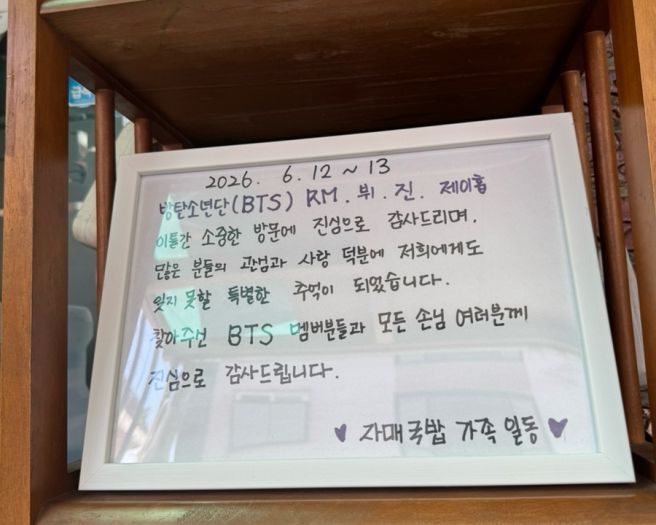 2026. 6. 12 ~ 13
방탄소년단(BTS) RM. 뷔. 진. 제이홉
이틀간 소중한 방문에 진심으로 감사드리며,
많은 분들의 관심과 사랑 덕분에 저희에게도
잊지 못할 특별한 추억이 되었습니다.
찾아주신 BTS 멤버분들과 모든 손님 여러분께
진심으로 감사드립니다.
♥ 자매국밥 가족 일동 ♥